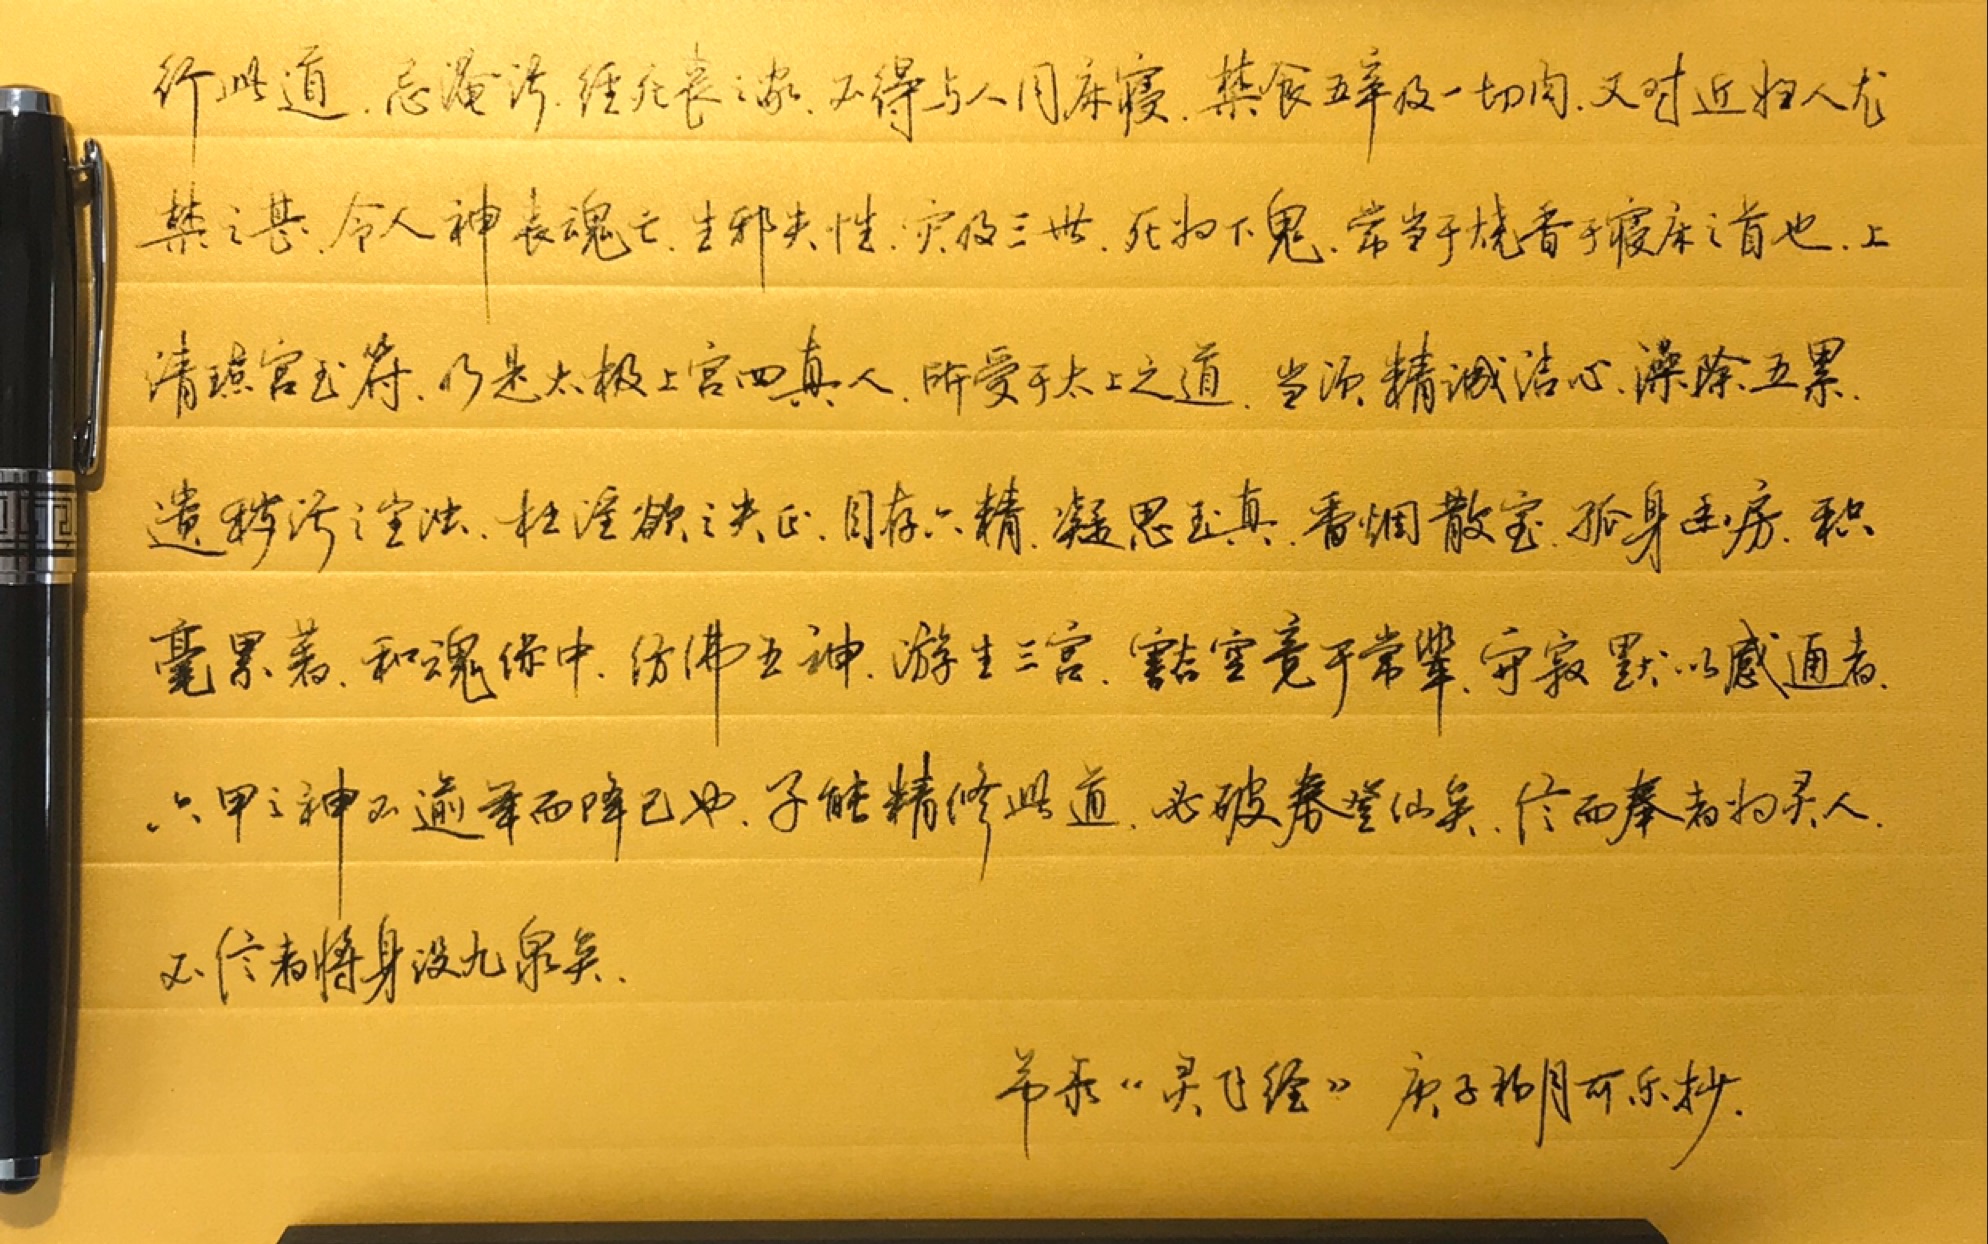 行此道、忌淹污、经死丧之家、不得与人同床寝、禁食五辛及一切肉、又对近妇人尤
禁之甚、令人神丧魂亡、生邪失性、灾及三世、死为下鬼、常当于烧香于寝床之首也、上
清琼宫玉符、乃是太极上宫四真人、所受于太上之道、当须精诚洁心、澡除五累、
遗秽污之尘浊、杜淫欲之失正、目存六精、凝思玉真、香烟散室、孤身幽房、积
毫累著、和魂保中、仿佛五神、游生三宫、豁空竟于常辈、守寂默以感通者、
六甲之神不逾年而降己也、子能精修此道、必破券登仙矣、信而奉者为灵人、
不信者将身没九泉矣、
节录“灵飞经” 庚子 月可乐抄、